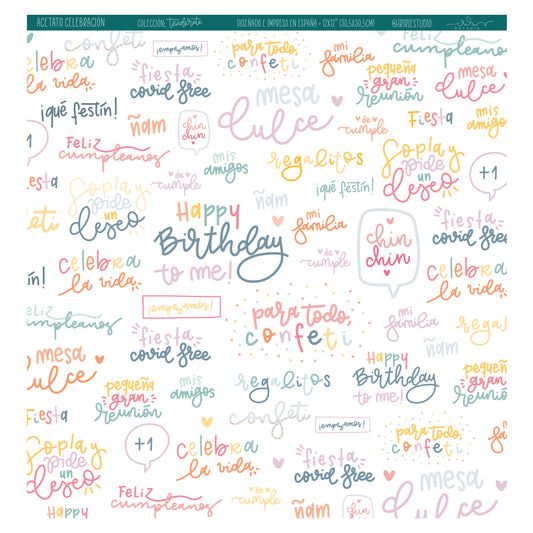 ACETATO CELEBRACIÓN
COLECCIÓN: Tenderete
DISEÑADO E IMPRESO EN ESPAÑA - 12X12" (30,5X30,5CM)
@IRIRIESTUDIO
confeti
¡empezamos!
para todo,
confeti
mi
familia
Feliz
cumpleaños
celebra
la vida
fiesta
covid free
mesa
dulce
pequeña
gran
reunión
mesa
dulce
¡qué festín!
ñam
chin
chin
mi
familia
Fiesta
ñam
+1
Feliz
cumpleaños
mis
amigos
regalitos
Soplay
pide
un
deseo
+1
Fiesta
Soplay
pide
un
deseo
de
cumple
ñam
¡qué festín!
mis
amigos
confeti
Happy
Birthday
to me!
mi
familia
chin
chin
fiesta
covid free
¡qué festín!
celebra
la vida
de
cumple
celebra
la vida
Feliz
cumpleaños
¡empezamos!
para todo,
confeti
mi
familia
regalitos
mesa
dulce
fiesta
covid free
ñam
pequeña
gran
reunión
mis
amigos
regalitos
Happy
Birthday
to me!
pequeña
gran
reunión
Fiesta
confeti
¡empezamos!
para todo,
confeti
mi
familia
Soplay
pide
un
deseo
+1
celebra
la vida
fiesta
covid free
mesa
dulce
Feliz
cumpleaños
de
cumple
Happy
ñam
chin